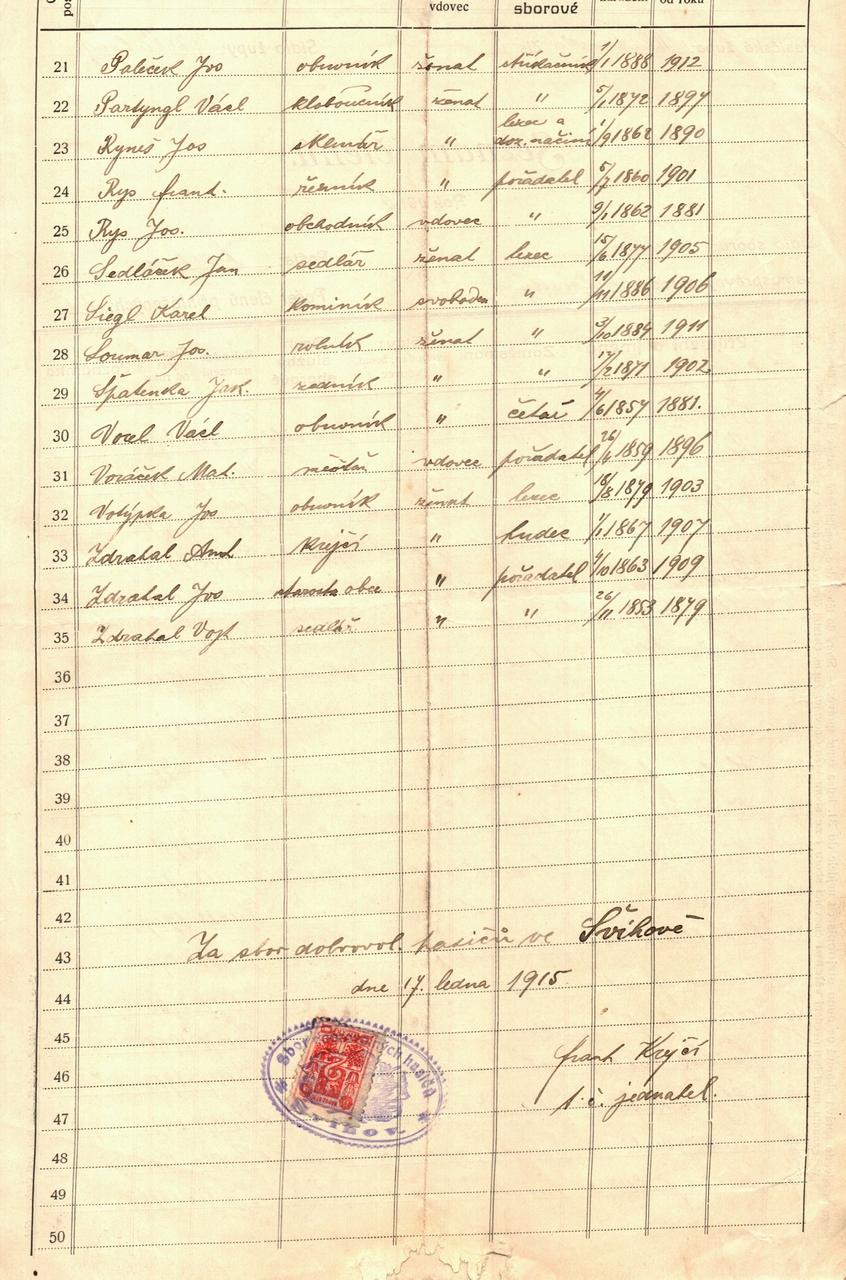 vdovec sborové od roku
21 Paleček Jos obuvník ženat stříkačník 1/1 1888 1912
22 Partyngl Václ kloboučník ženat " 5/1 1872 1897
lezec a
23 Ryneš Jos sklenář " doz. náčiní 1/9 1862 1890
24 Rys frant. řezník " pořádatel 5/7 1860 1901
25 Rys Jos. obchodník vdovec " 9/1 1862 1881
26 Sedláček Jan sedlář ženat lezec 15/6 1877 1905
27 Siegl Karel kominík svoboden " 11/11 1886 1906
28 Soumar Jos. rolník ženat " 3/10 1884 1911
29 Špatenka Jak. zedník " " 17/2 1871 1902
30 Vorel Václ obuvník " četař 4/6 1857 1881.
31 Voráček Mat. měšťan vdovec pořádatel 1859 1896
32 Votýpka Jos obuvník ženat lezec 18/8 1879 1903
33 Zdrahal Ant krejčí " hudec 1/1 1867 1907
34 Zdrahal Jos starosta obce " pořádatel 4/10 1863 1909
35 Zdrahal Vojt sedlář " " 26/11 1853 1879
36
37
38
39
40
41
42
43 Za sbor dobrovol. hasičů ve Švihově
44 dne 17. ledna 1915
45
46 frant Krejčí
47 t. č. jednatel.
48
49
50
Sbor hasičů
2